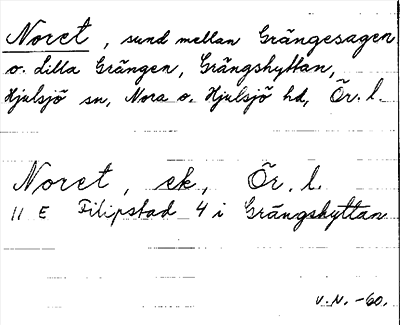 Noret, sund mellan Grängesagen
o. Lilla Grängen, Grängshyttan,
Hjulsjö sn, Nora o. Hjulsjö hd, Ör. l.
Noret, ek, Ör. l.
11 E Filipstad 4 i Grängshyttan
V.N. -60.